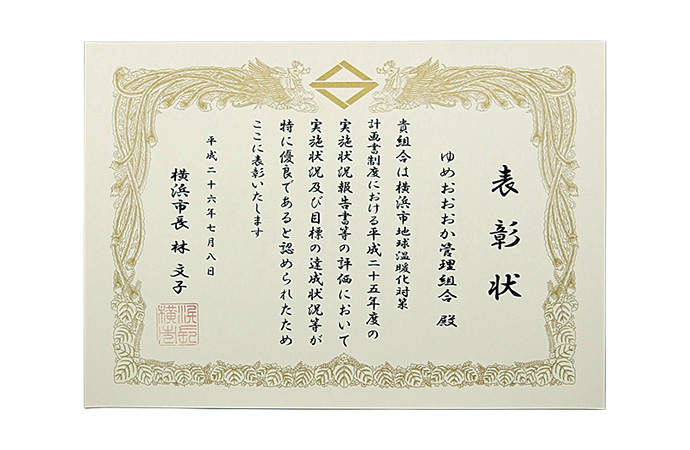 表彰状
ゆめおおおか管理組合 殿
貴組合は横浜市地球温暖化対策
計画書制度における平成二十五年度の
実施状況報告書等の評価において
実施状況及び目標の達成状況等が
特に優良であると認められたため
ここに表彰いたします
平成二十六年七月八日
横浜市長 林 文子